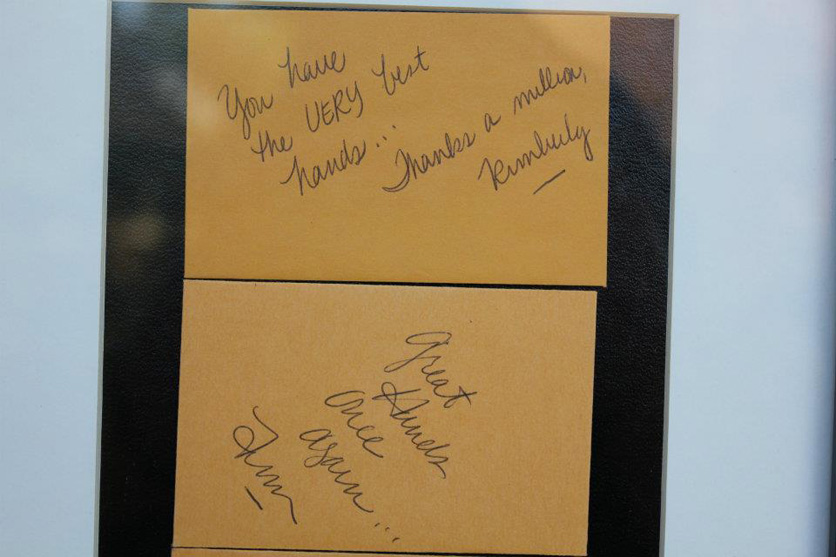 You have
the VERY best
hands...
Thanks a million,
Kimberly
Great
Hands
once
again...